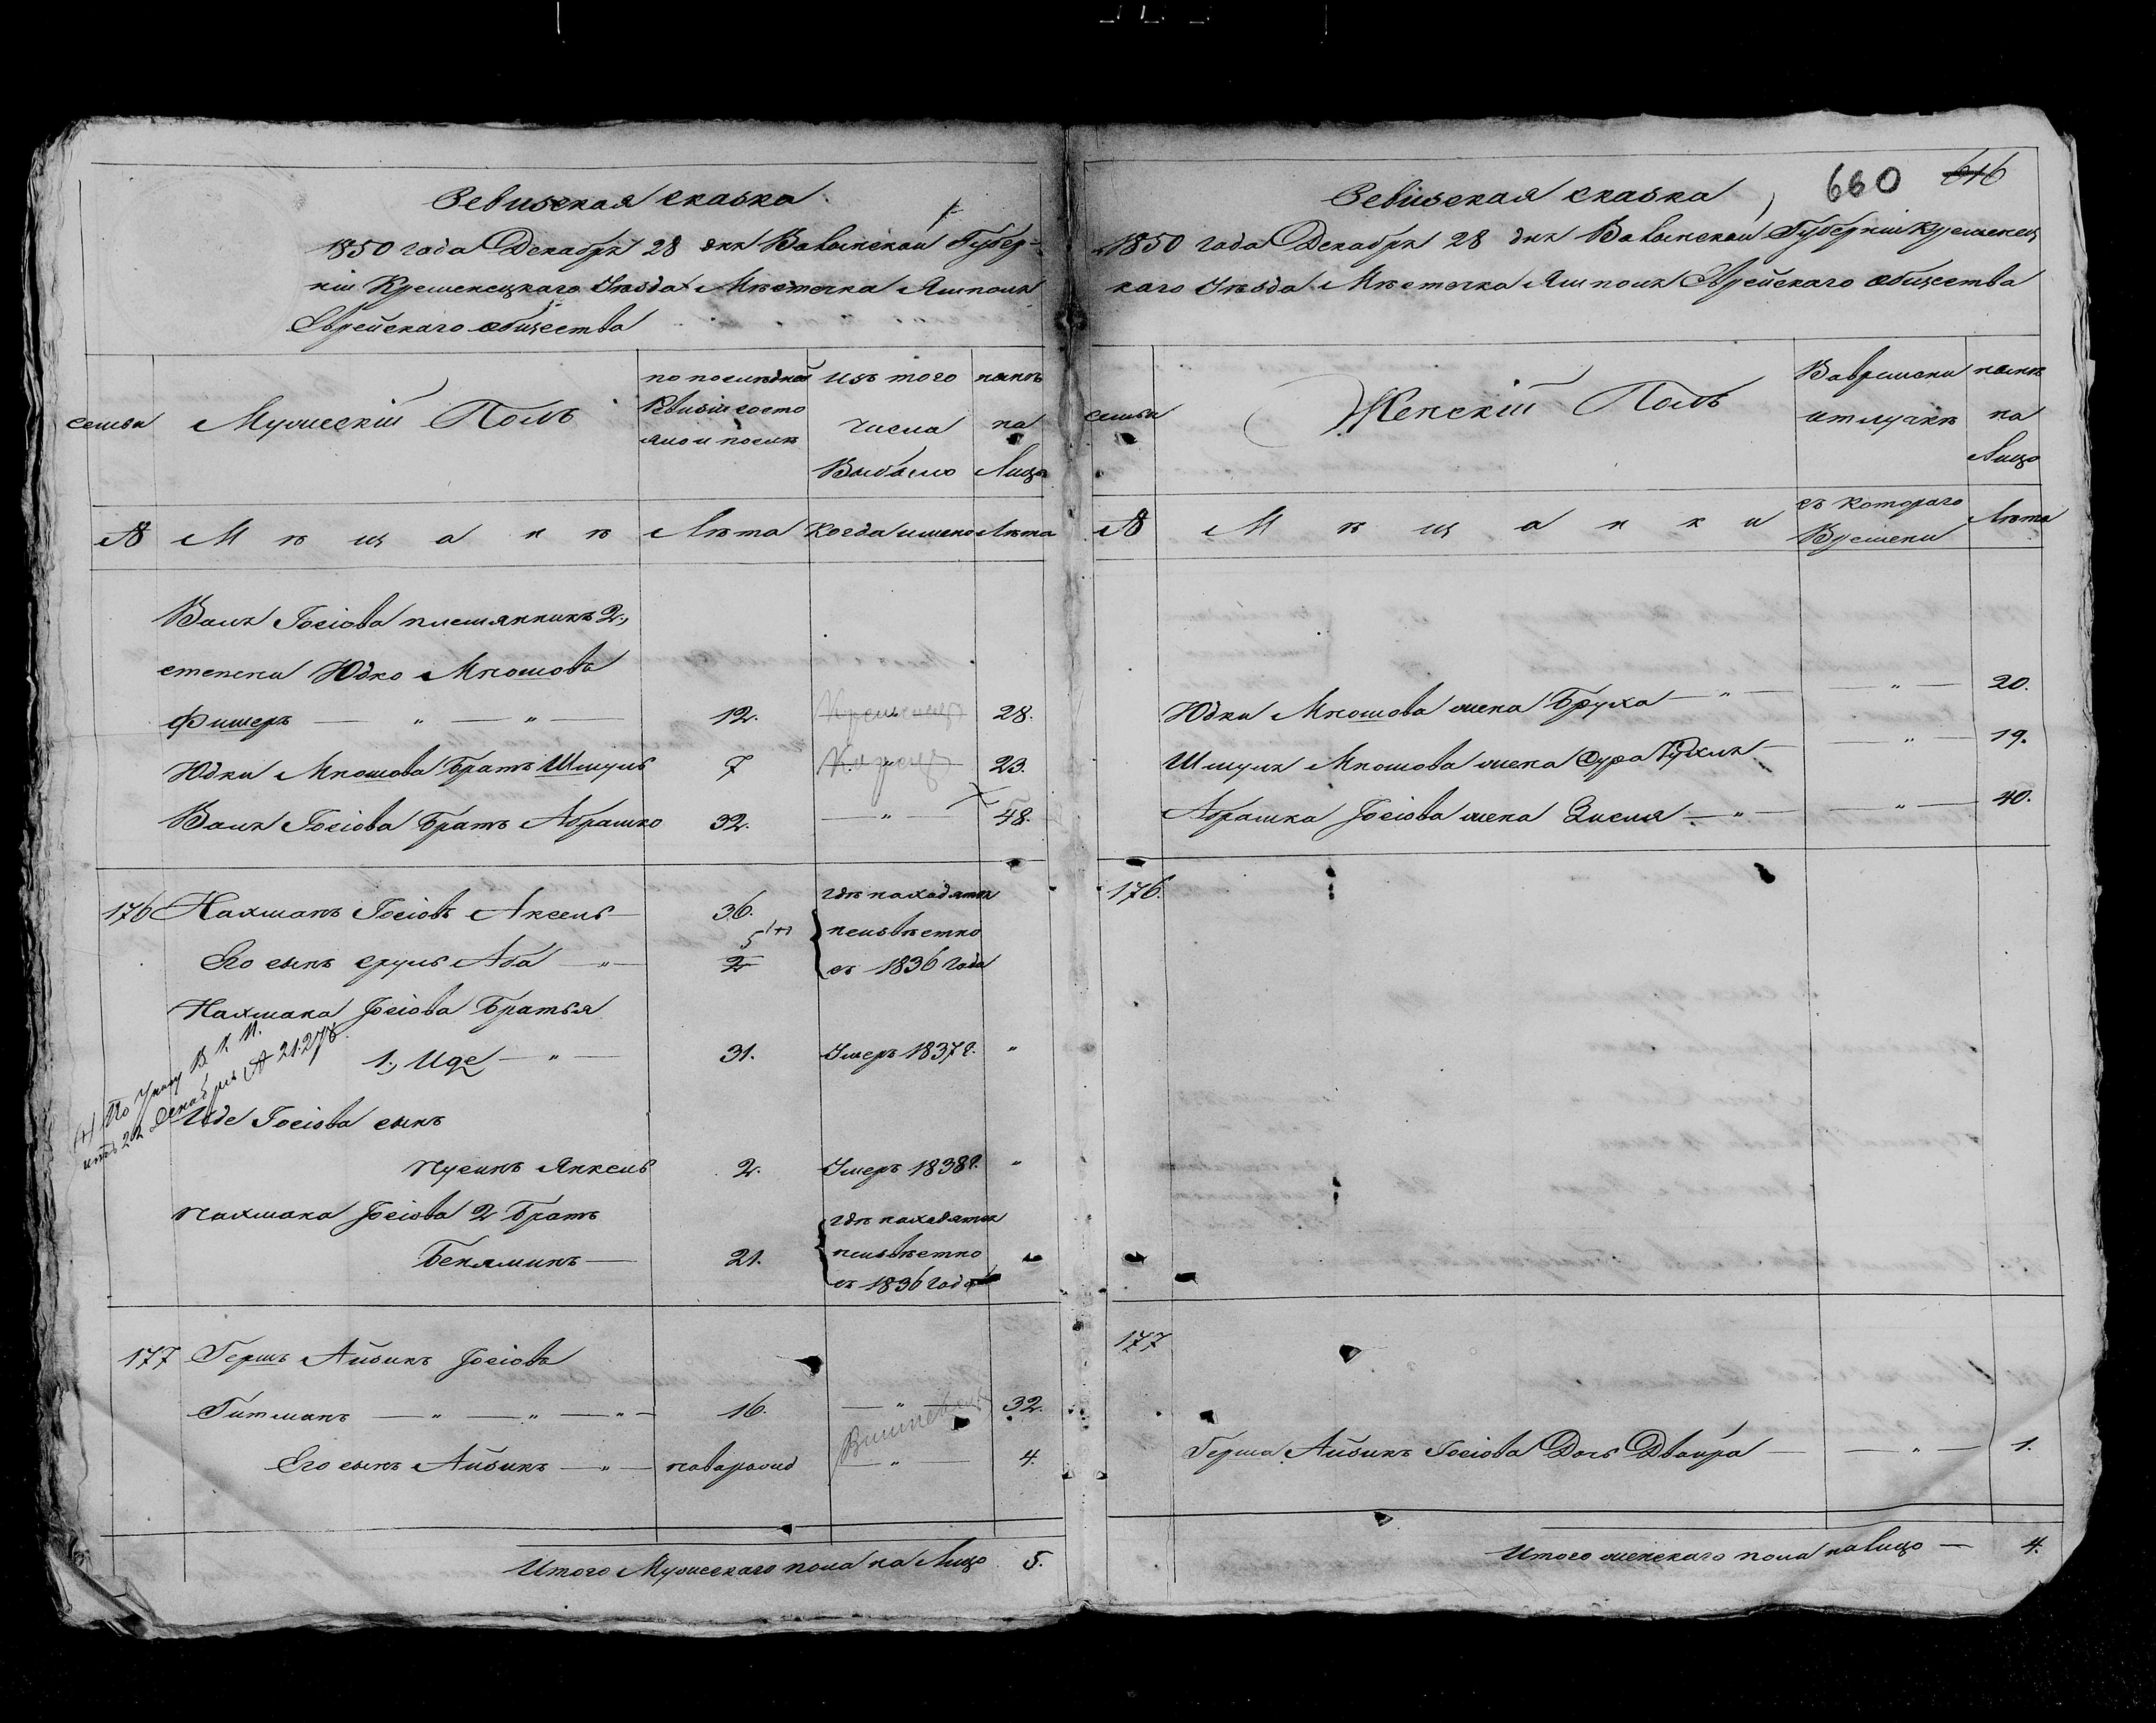 Ревизская сказка
1850 года Декабря 28 дня Волынской Губер-
ніи Кременецкаго Уѣзда Мѣстечка Ямполя
Еврейскаго общества
семьи
Мужескій Полъ
по послѣдней
Ревизіи состо
яло и послѣ
изъ того
числа
Выбыло
нынѣ
на
Лицо
№
М ѣ щ а н ѣ
Лѣта
Когда имено
Лѣта
Вольа Іосіова племянникъ 2,,
степени Юдко Мношова
Фишеръ — „ — „ — 12. 28.
Юдки Мношова Братъ Шмуль 7 23.
Вольа Іосіова Братъ Абрашко 32. — „ — 48.
176 Нахманъ Іосіовъ Аксель 36.
гдѣ находятся
неизвѣстно
съ 1836 года
Его сынъ Сруль Аба — „ — 5 (+) 2
Нахмана Іосіова Братья
1., Иде — „ — 31. Умеръ 1837г. „
(+) По Указу В. К. П.
отъ 22 Декабря № 21.276
Иде Іосіова сынъ
Нусинъ Янкель 2. Умеръ 1838г. „
Нахмана Іосіова 2 Братъ
Беняминъ — 21.
гдѣ находятся
неизвѣстно
съ 1836 года
177 Гершъ Айзикъ Іосіова
Гитманъ — „ — „ — „ — 16. — „ — 32.
Его сынъ Айзикъ — „ — новарожд — „ — 4.
Итого Мужескаго пола на Лицо 5.
660 616
Ревизская сказка
1850 года Декабря 28 дня Волынской Губерніи Кременец
каго Уѣзда Мѣстечка Ямполя Еврейскаго общества
семьи
Женскій Полъ
Вовремени
отлучкѣ
нынѣ
на
Лицо
№
М ѣ щ а н к и
съ котораго
Времени
Лѣта
Юдки Мношова жена Бруха — „ — — „ — 20.
Шмуля Мношова жена Сура Рухля — — „ — 19.
Абрашка Іосіова жена Зисля — „ — — „ — 40.
176.
177
Герша Айзикъ Іосіова Дочь Двойра — — „ — 1.
Итого женскаго пола налицо — 4.